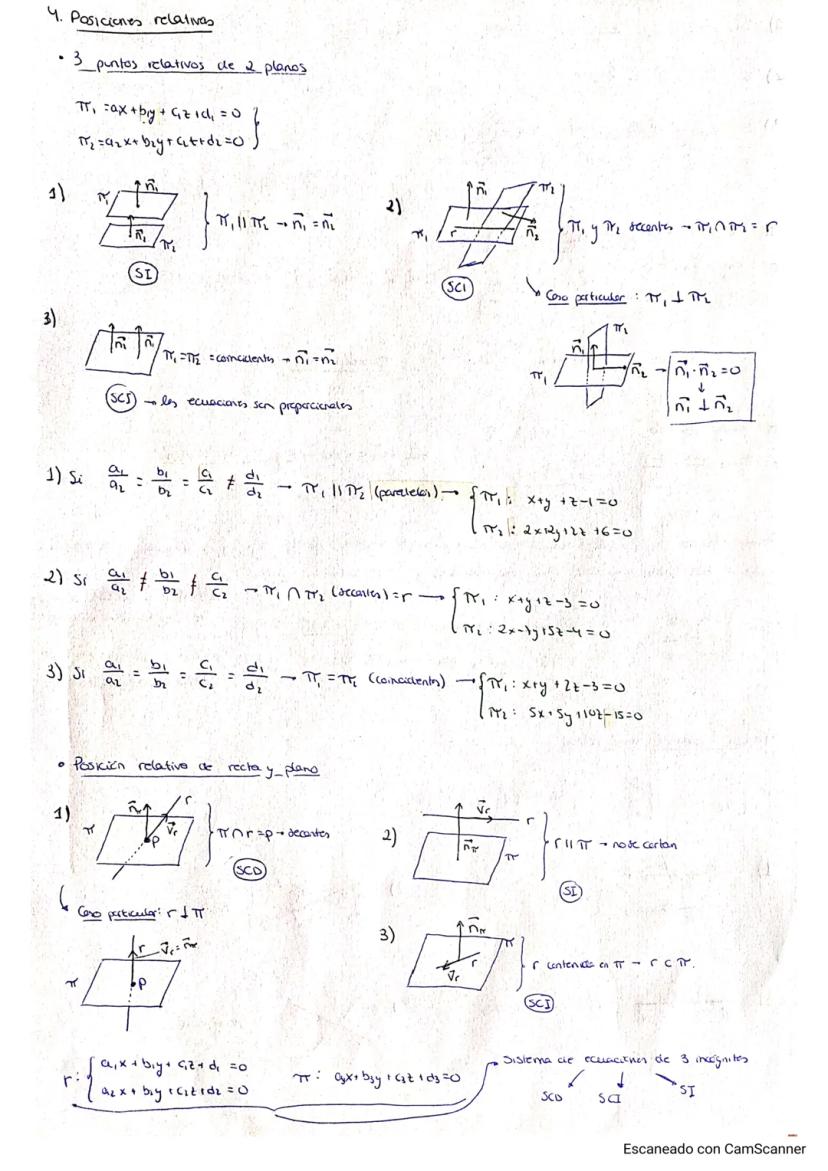 4. Posiciones relativas
• 3 puntos relativos de 2 planos
π₁ = ax + b₁y + c₁z + d₁ = 0
π₂ = a₂x + b₂y + c₂z + d₂ = 0
1) π₁ n⃗₁ n⃗₂ π₂ } π₁ || π₂ → n⃗₁ = n⃗₂
SI
2) n⃗₁ π₂ π₁ r n⃗₂ } π₁ y π₂ secantes → π₁ ∩ π₂ = r
SCI
↘ Caso particular : π₁ ⊥ π₂
3) n⃗₁ n⃗ π₁ = π₂ = coincidentes → n⃗₁ = n⃗₂
SCI → las ecuaciones son proporcionales
π₂ n⃗₁ π₁ n⃗₂ → n⃗₁ · n⃗₂ = 0
↓
n⃗₁ ⊥ n⃗₂
1) Si a₁/a₂ = b₁/b₂ = c₁/c₂ ≠ d₁/d₂ → π₁ || π₂ (paralelos) → { π₁ : x+y+z-1=0
π₂ : 2x+2y+2z+6=0
2) Si a₁/a₂ ≠ b₁/b₂ ≠ c₁/c₂ → π₁ ∩ π₂ (secantes) = r → { π₁ : x+y+z-3=0
π₂ : 2x-3y+5z-4=0
3) Si a₁/a₂ = b₁/b₂ = c₁/c₂ = d₁/d₂ → π₁ = π₂ (coincidentes) → { π₁ : x+y+2z-3=0
π₂ : 5x+5y+10z-15=0
• Posición relativa de recta y plano
1) n⃗π r π v⃗r P } π ∩ r = p → secantes
SCD
2) v⃗r r n⃗π π } r || π → no se cortan
SI
↳ Caso particular : r ⊥ π
r v⃗r = n⃗π
π P
3) n⃗π π r v⃗r } r contenida en π → r ⊂ π.
SCI
r : { a₁x + b₁y + c₁z + d₁ = 0
a₂x + b₂y + c₂z + d₂ = 0
π : a₃x + b₃y + c₃z + d₃ = 0
Sistema de ecuaciones de 3 incógnitas
SCD SCI SI
Escaneado con CamScanner